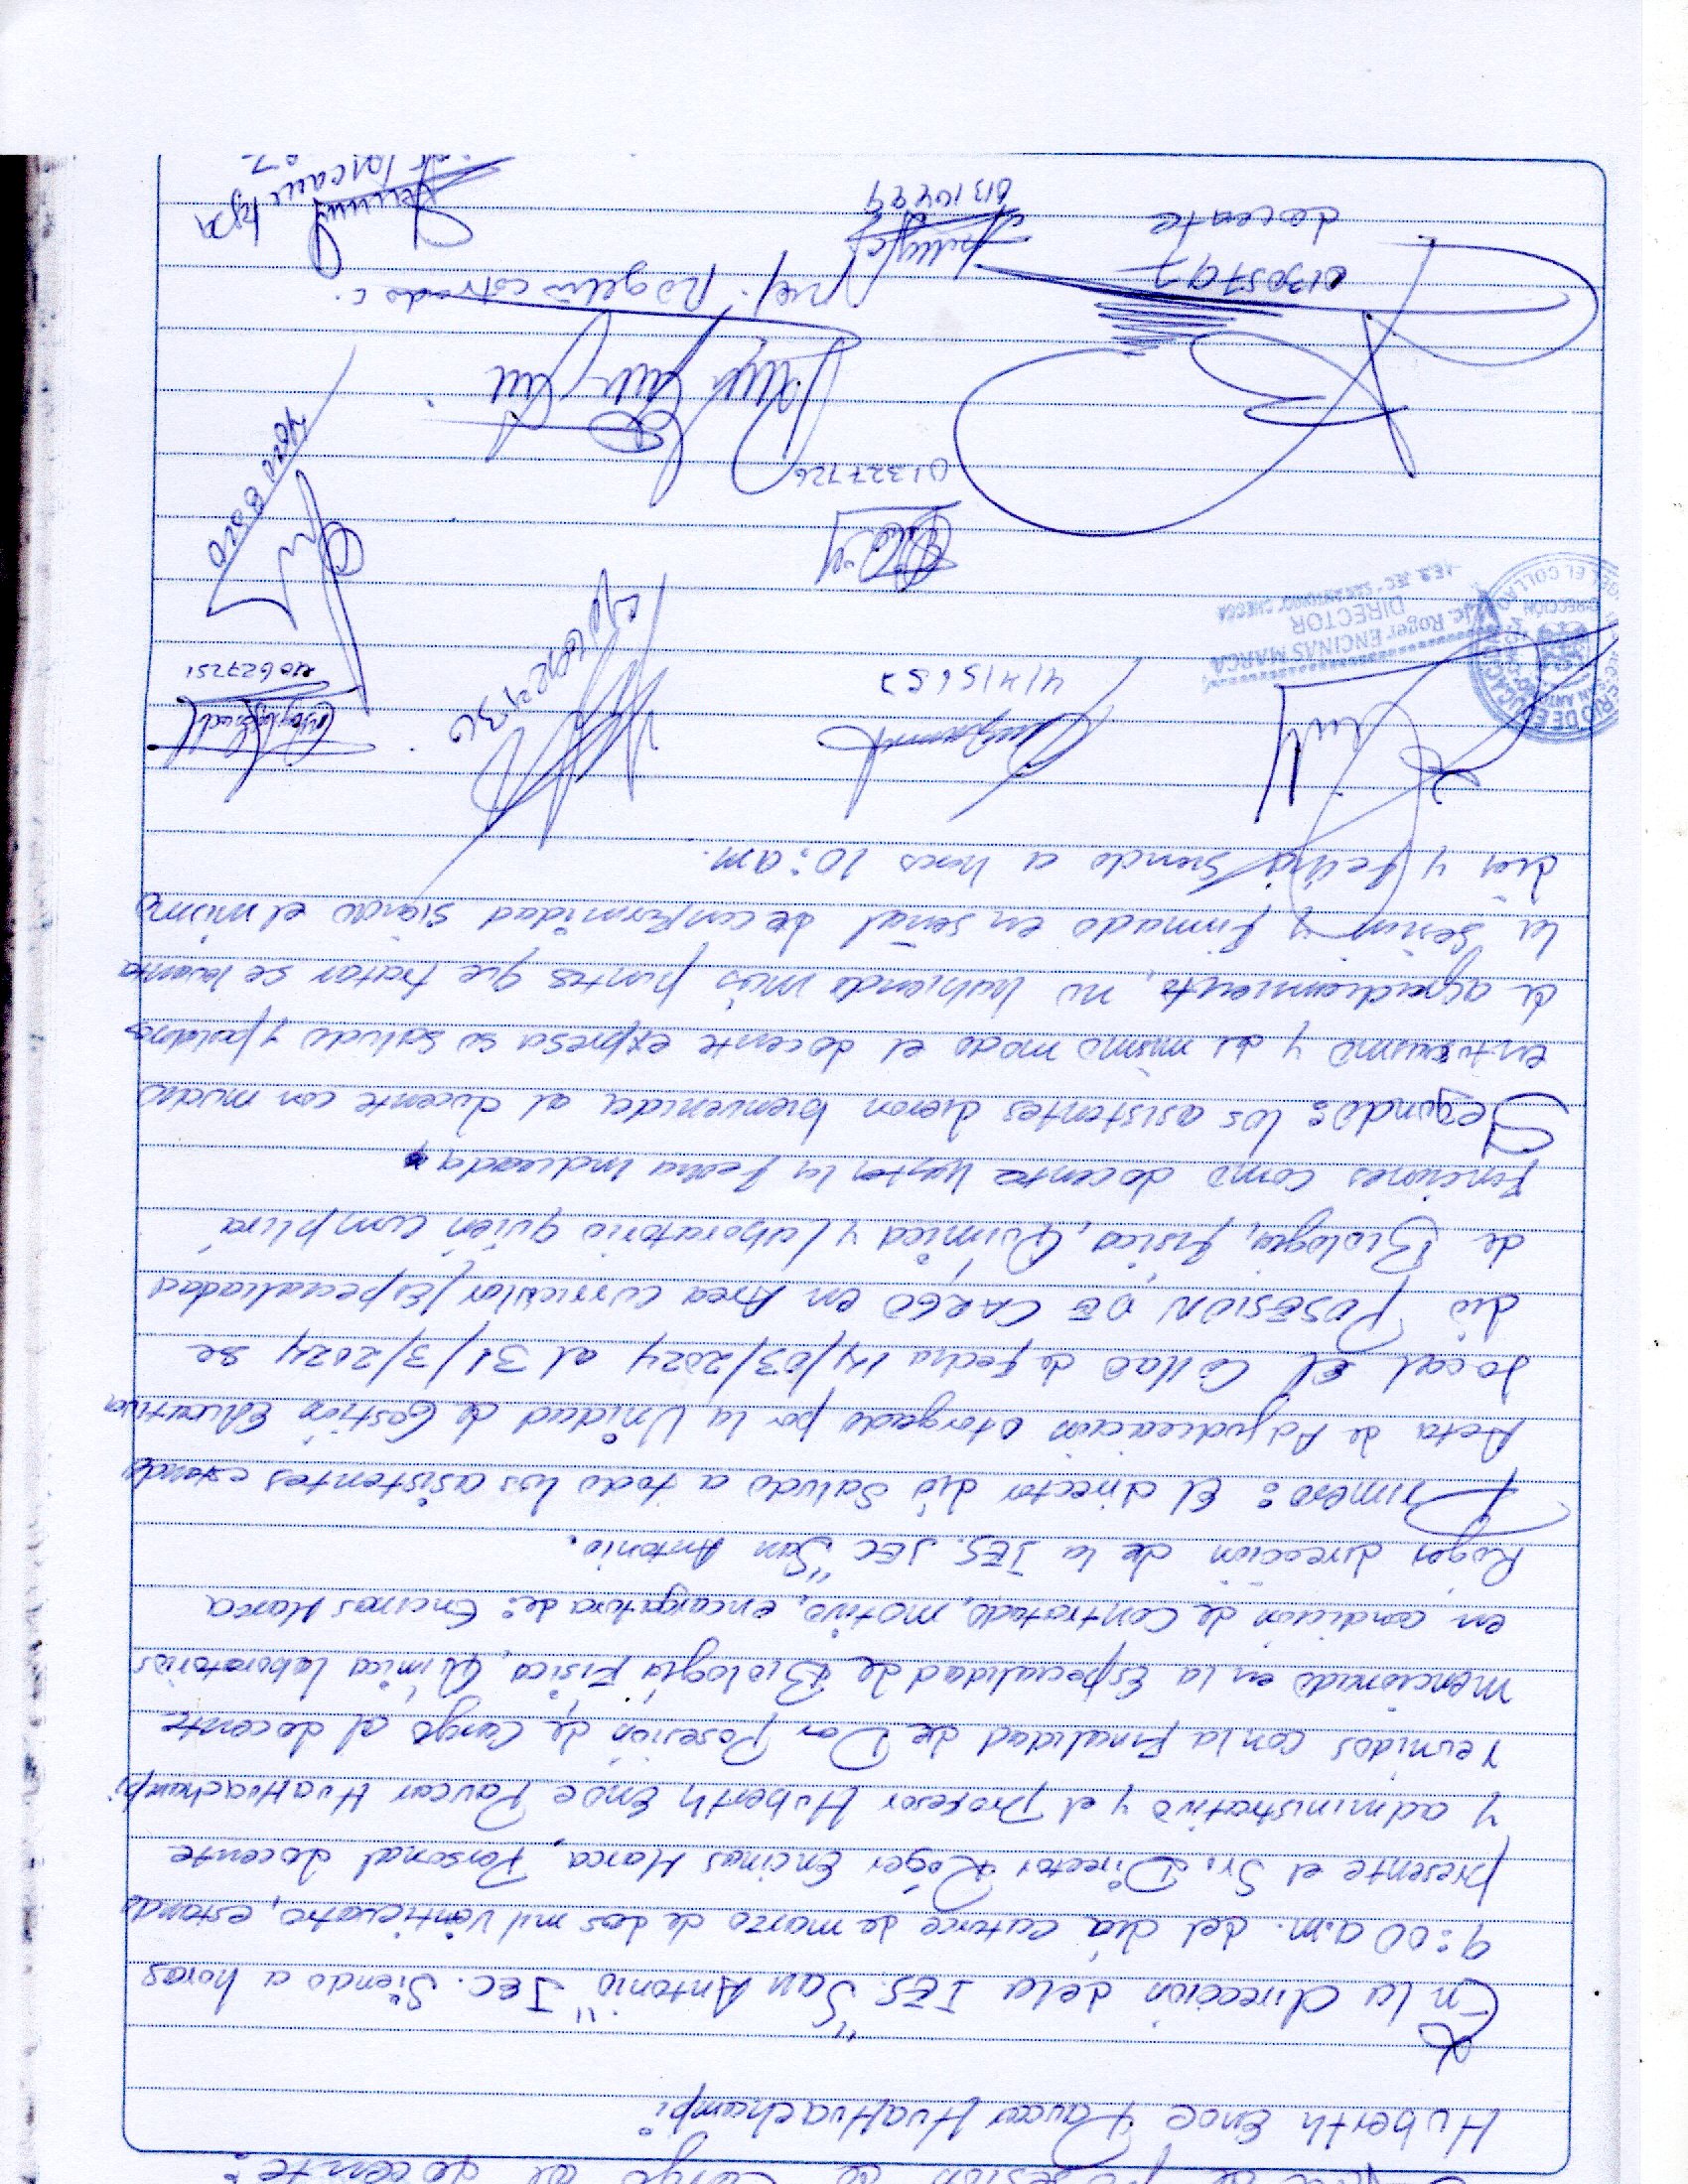 de posesión de Cargo al docente:
Huberth Enoc Paucar HuaHuachampi
En la dirección dela IES. "San Antonio" JEC. Siendo a horas
9:00 a.m. del día catorce de marzo de dos mil veinticuatro, estando
presente el Sr. Director Róger Encinas Marca, Personal docente
y administrativo y el profesor Huberth Enoc Paucar HuaHuachampi
reunidos con la Finalidad de Dar Posesión de Cargo al docente
mencionado en la Especialidad de Biología Fisica, Química laboratorios
en condición de Contratado, motivo, encargatura de: Encinas Marca
Roger dirección de la IES. JEC "San Antonio.
Primero: El director dió saludo a todo los asistentes
Acta de Adjudicación otorgado por la Unidad de Gestión Educativa
Local El Collao de fecha 14/03/2024 al 31/3/2024 se
dió POSESION DE CARGO en Area curricular/Especialiadad
de Biología, fisica, Química y Laboratorio quién cumplirá
Funciones como docente hasta la fecha indicada.
Segundo: los asistentes dieron bienvenida al docente con mucho
entusiasmo y del mismo modo el docente expresa su saludo y palabras
de agradecimiento, no habiendo más puntos que tratar se levanta
la sesion y firmado en señal de conformidad siendo el mismo
día y fecha siendo a horas 10:am.
Roger ENCINAS MARCA
DIRECTOR
41415657
40627251
01327726
Prof. Rogelio
01305797
docente
01310494